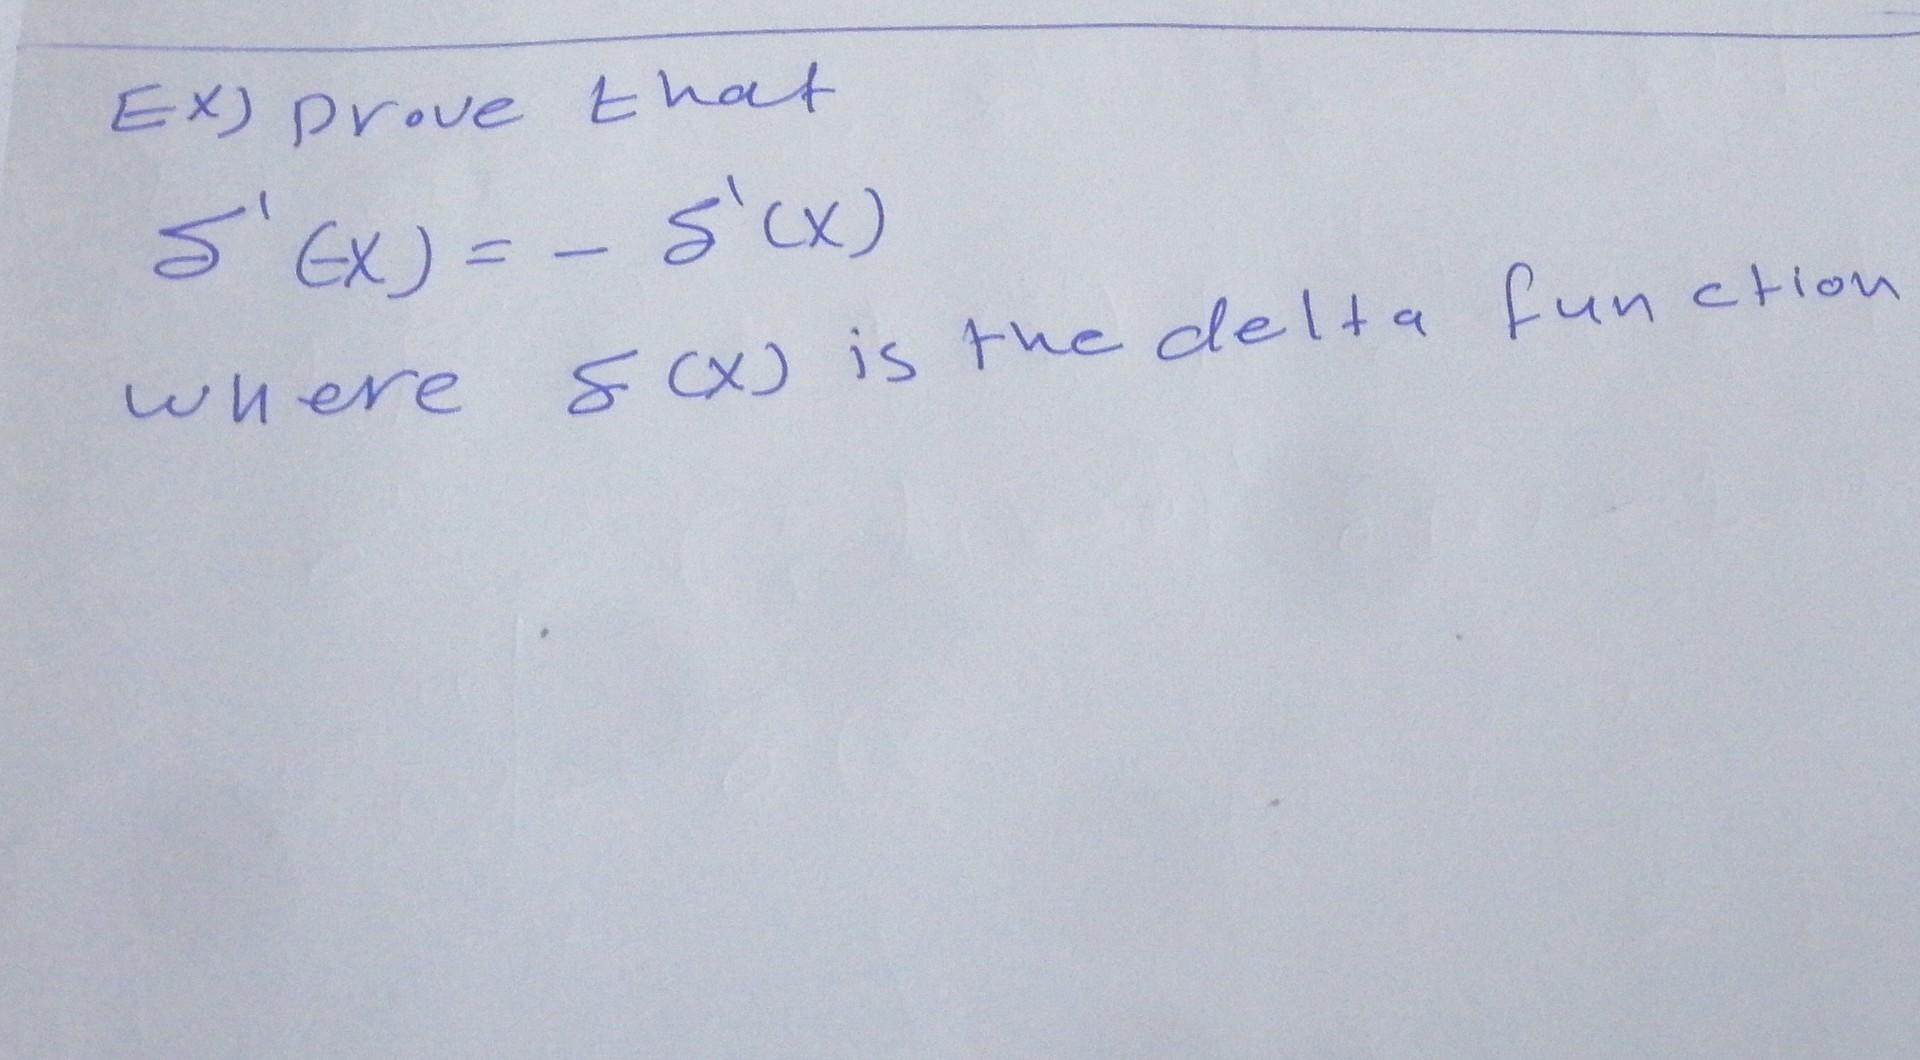 EX) prove that
δ'(-X) = - δ'(X)
where δ(X) is the delta function